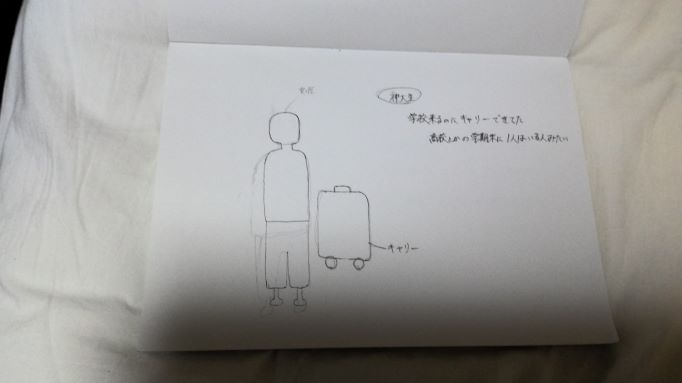 神大生
学校来るのにキャリーできてた
高校とかの学期末に1人はいる人みたい
キャリー